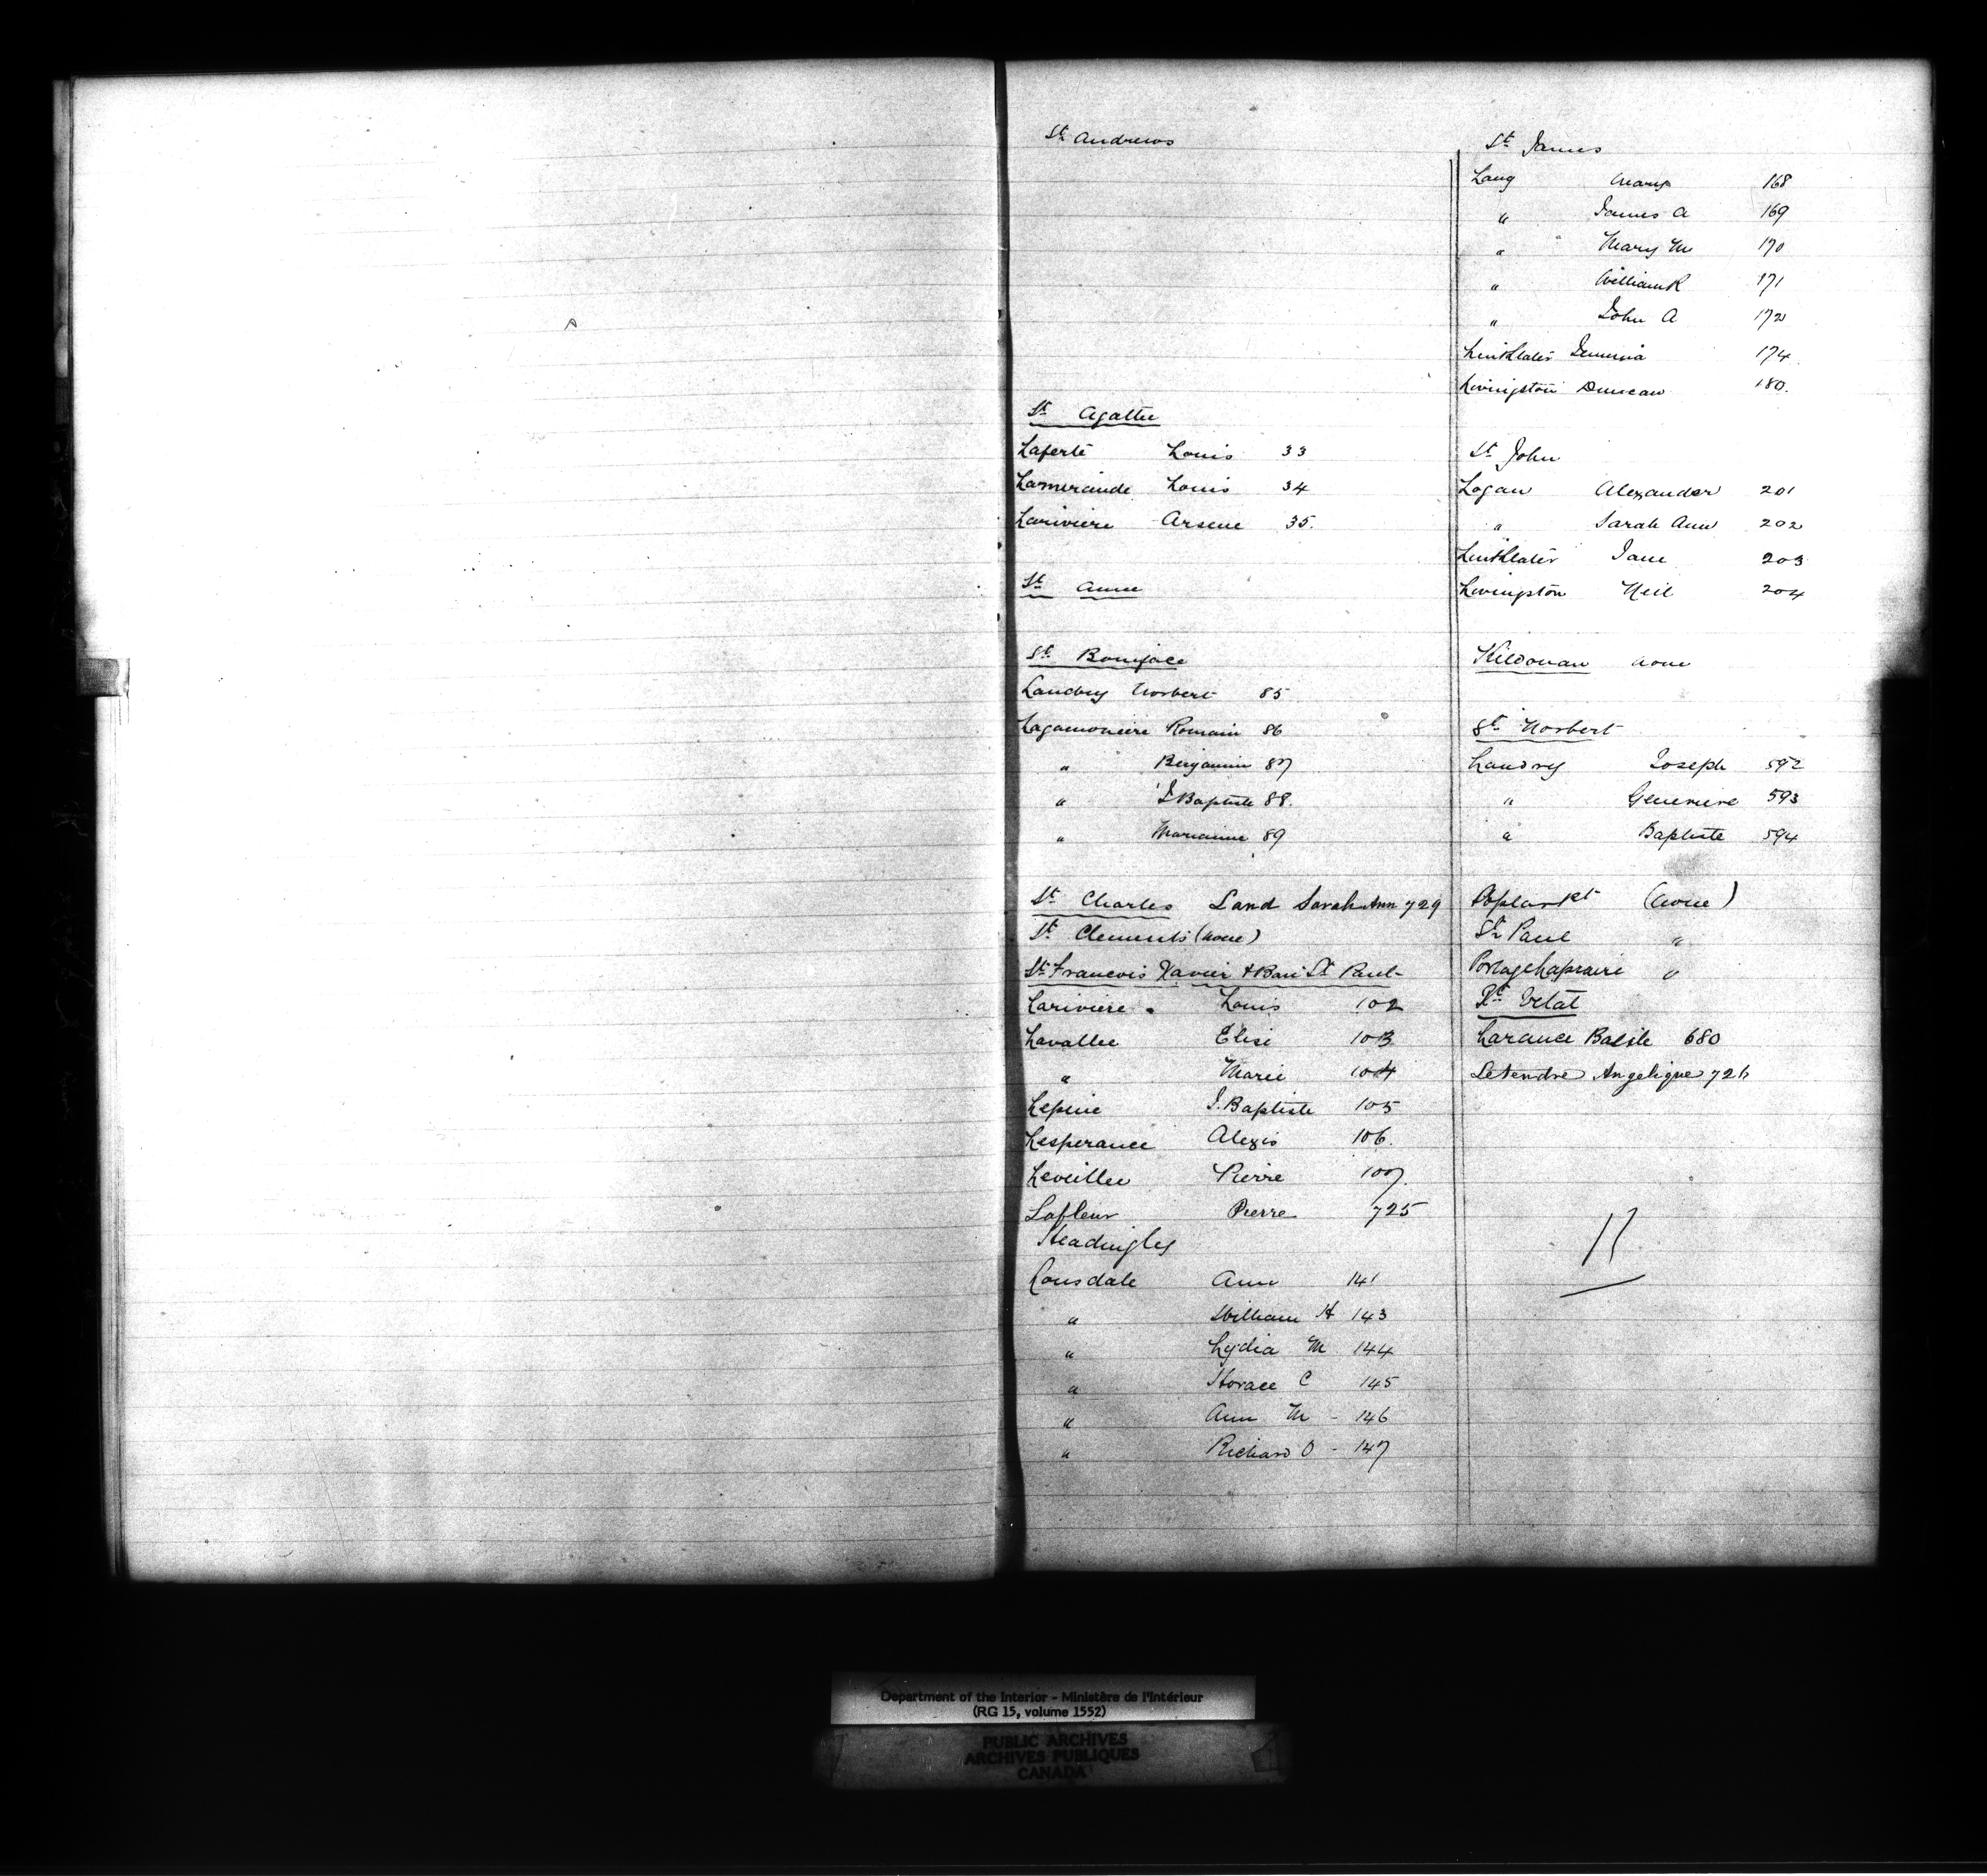 St Andrews
St Agathe
Laferté Louis 33
Lamerande Louis 34
Lariviere Arsene 35.
St Anne
St Boniface
Landry Norbert 85
Lagamoniere Romain 86
" Benjamin 87
" J Baptiste 88.
" Marianne 89
St Charles Land Sarah Ann 729
St Clements (none)
St Francois Xavier & Baie St Paul
Lariviere Louis 102
Lavallee Elise 103
" Marie 104
Lepine J. Baptiste 105
Lesperance Alexis 106.
Leveillee Pierre 107.
Lafleur Pierre 725
Headingley
Lonsdale Ann 141
" William H 143
" Lydia M 144
" Horace C 145
" Ann M - 146
" Richard O - 147
St James
Lang Mary 168
" James A 169
" Mary M 170
" William R 171
" John A 172
Linklater Jemima 174
Livingston Duncan 180.
St John
Logan Alexander 201
" Sarah Ann 202
Linklater Jane 203
Livingston Neil 204
Kildonan none
St Norbert
Landry Joseph 592
" Genevieve 593
" Baptiste 594
Poplar Pt (none)
St Paul "
Portage Laprairie "
Larance Basile 680
Letendre Angelique 726
Department of the Interior - Ministère de l'Intérieur
(RG 15, volume 1552)
PUBLIC ARCHIVES
ARCHIVES PUBLIQUES
CANADA